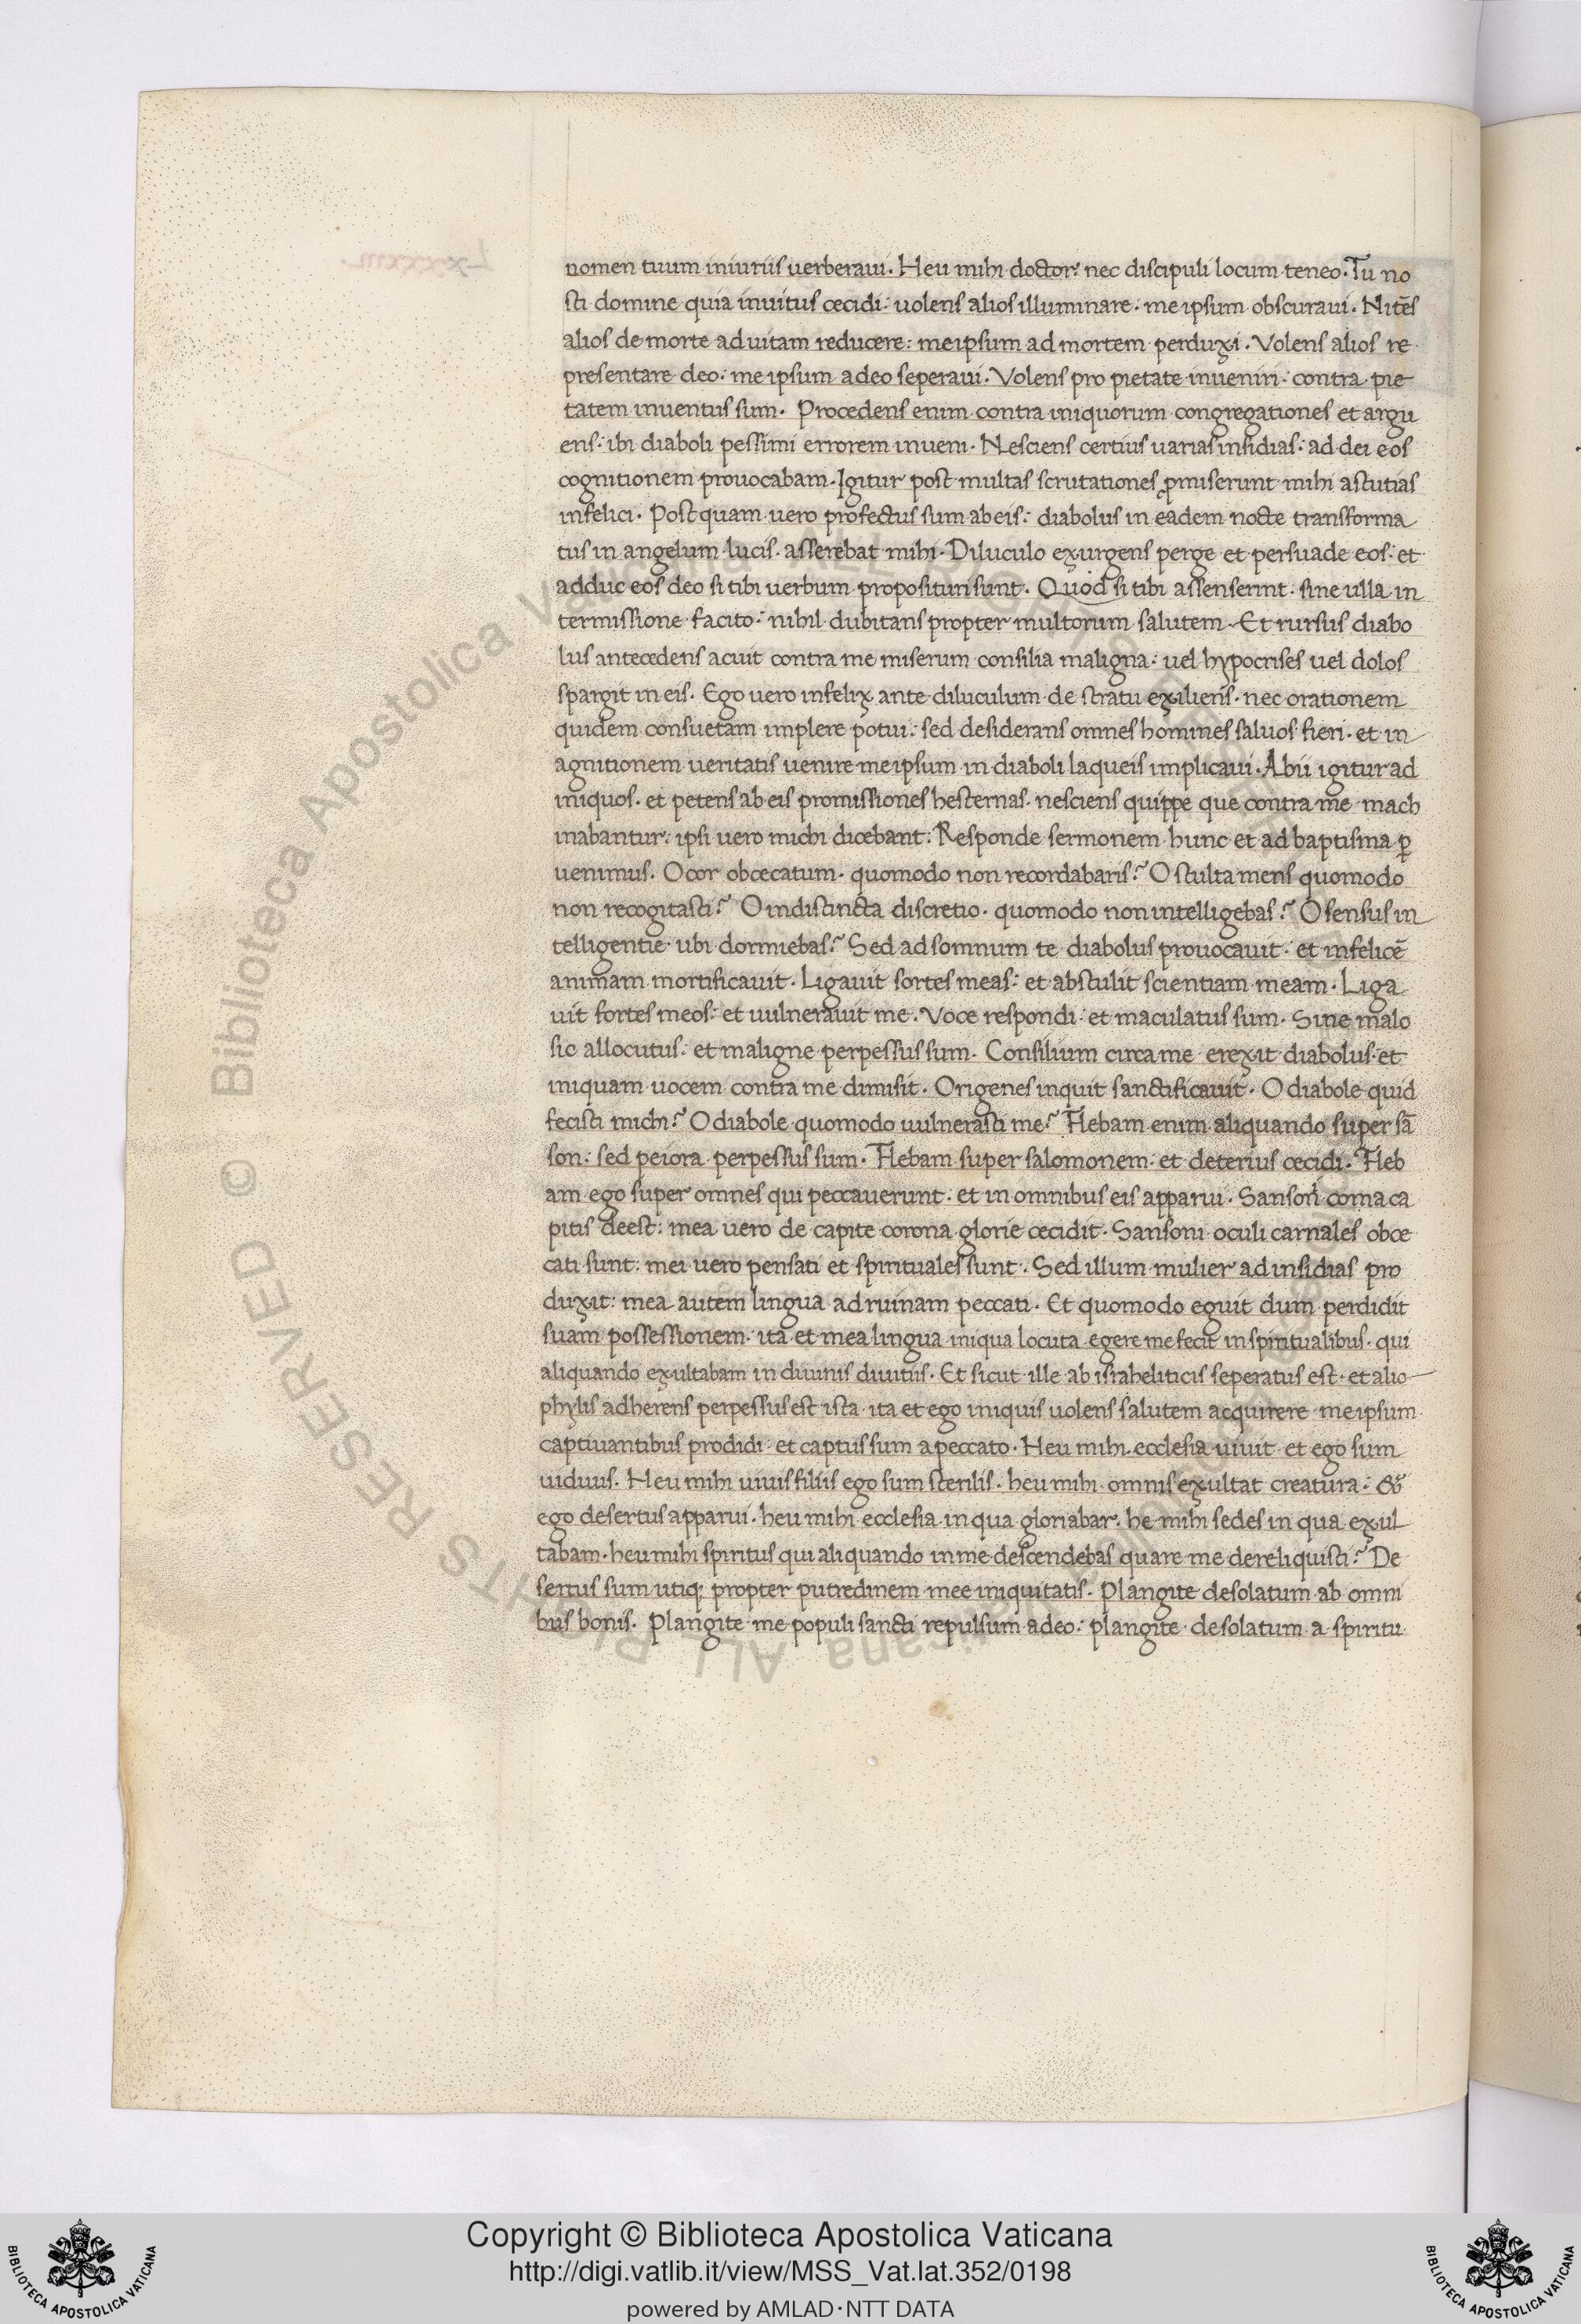 nomen tuum iniuriis uerberaui. Heu mihi doctor: nec discipuli locum teneo. Tu no
sti domine quia inuitus cecidi: uolens alios illuminare. me ipsum obscuraui. Nitēs
alios de morte ad uitam reducere: me ipsum ad mortem perduxi. Volens alios re
presentare deo: me ipsum a deo seperaui. Volens pro pietate inueniri: contra pie
tatem inuentus sum. Procedens enim contra iniquorum congregationes et argu
ens: ibi diaboli pessimi errorem inueni. Nesciens certius uarias insidias: ad dei eos
cognitionem prouocabam. Igitur post multas scrutationes ꝓmiserunt mihi astutias
infelici. Postquam uero profectus sum ab eis: diabolus in eadem nocte transforma
tus in angelum lucis. asserebat mihi. Diluculo exurgens perge et persuade eos: et
adduc eos deo si tibi uerbum proposituri sunt. Quod si tibi assenserint. sine ulla in
termissione facito: nihil dubitans propter multorum salutem. Et rursus diabo
lus antecedens acuit contra me miserum consilia maligna: uel hypocrises uel dolos
spargit in eis. Ego uero infelix ante diluculum de stratu exiliens. nec orationem
quidem consuetam implere potui: sed desiderans omnes homines saluos fieri. et in
agnitionem ueritatis uenire me ipsum in diaboli laqueis implicaui. Abii igitur ad
iniquos. et petens ab eis promissiones hesternas. nesciens quippe que contra me mach
inabantur: ipsi uero michi dicebant: Responde sermonem hunc et ad baptisma ꝑ
uenimus. O cor obcecatum. quomodo non recordabaris? O stulta mens quomodo
non recogitasti? O indistincta discretio. quomodo non intelligebas? O sensus in
telligentie ubi dormiebas? Sed ad somnum te diabolus prouocauit: et infelicē
animam mortificauit. Ligauit sortes meas: et abstulit scientiam meam. Liga
uit fortes meos: et uulnerauit me. Voce respondi: et maculatus sum. Sine malo
sic allocutus: et maligne perpessus sum. Consilium circa me erexit diabolus. et
iniquam uocem contra me dimisit. Origenes inquit sanctificauit. O diabole quid
fecisti michi? O diabole quomodo uulnerasti me? Flebam enim aliquando super sā
son: sed peiora perpessus sum. Flebam super salomonem: et deterius cecidi. Fleb
am ego super omnes qui peccauerunt: et in omnibus eis apparui. Sanson coma ca
pitis deest: mea uero de capite corona glorie cecidit. Sansoni oculi carnales obce
cati sunt: mei uero pensati et spirituales sunt. Sed illum mulier ad insidias pro
duxit: mea autem lingua ad ruinam peccati. Et quomodo eguit dum perdidit
suam possessionem. ita et mea lingua iniqua locuta egere me fecit in spiritualibus. qui
aliquando exultabam in diuinis diuitiis. Et sicut ille ab israheliticis seperatus est. et alio
phylis adherens perpessus est ista. ita et ego iniquis uolens salutem acquirere me ipsum
captiuantibus prodidi: et captus sum a peccato. Heu mihi ecclesia uiuit et ego sum
uiduus. Heu mihi uiuis filiis ego sum sterilis. heu mihi omnis exultat creatura: &
ego desertus apparui. heu mihi ecclesia in qua gloriabar. he mihi sedes in qua exul
tabam. heu mihi spiritus qui aliquando in me descendebas quare me dereliquisti? De
sertus sum utiq; propter putredinem mee iniquitatis. Plangite desolatum ab omni
bus bonis. Plangite me populi sancti repulsum a deo: plangite desolatum a spiritu
© Biblioteca Apostolica Vaticana ALL RIGHTS RESERVED
Copyright © Biblioteca Apostolica Vaticana
http://digi.vatlib.it/view/MSS_Vat.lat.352/0198
powered by AMLAD·NTT DATA
BIBLIOTECA APOSTOLICA VATICANA
BIBLIOTECA APOSTOLICA VATICANA